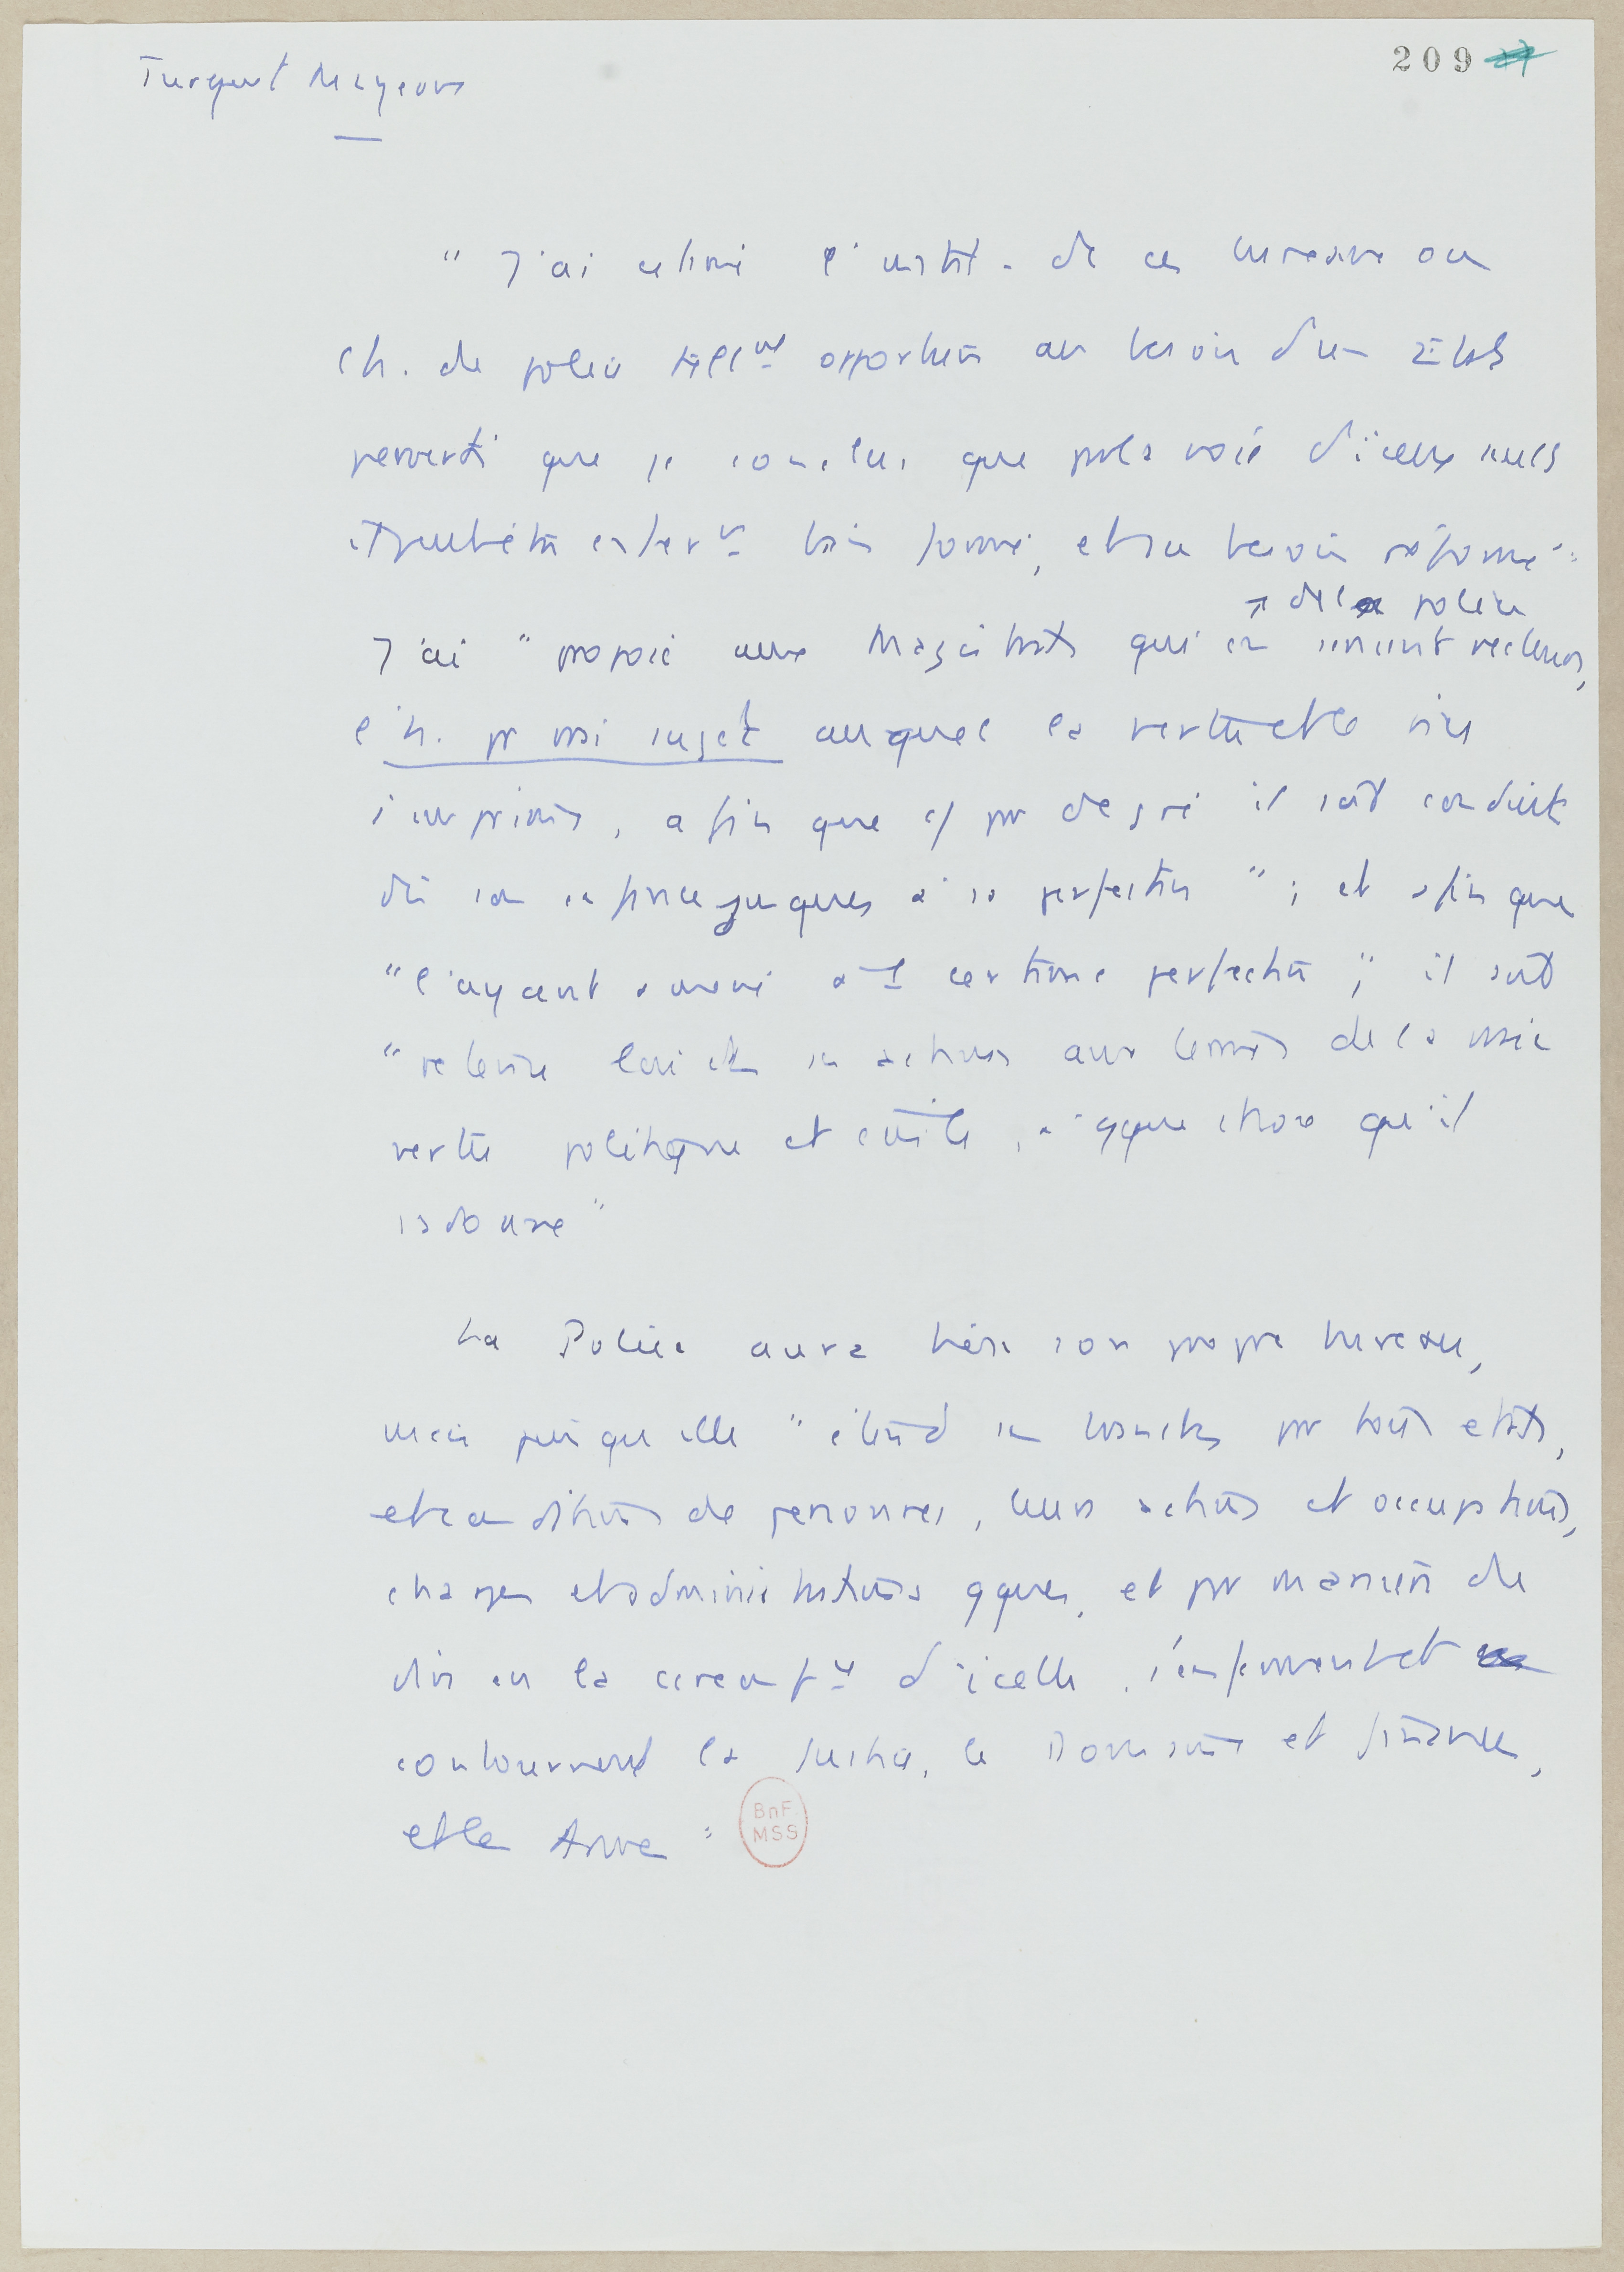 Turquet Mayerne
209
" J'ai estimé l'instit. de ces bureaux ou
ch. de police tellt opportun au besoin d'un Etat
perverti que je conclus que par la voie d'iceux seuls
bien formé, et au besoin réformé"
↗ de la police
J'ai " proposé aux Magistrats qui en seront recteurs,
l'h. pr vrai suget auquel la vertu et le vice
s'imprime, afin que par degré il soit conduit
dès son enfance jusques à sa perfection " ; et afin que
" l'ayant amené à certaine perfection ", il soit
" retenu lui et ses actions aux termes de la vraie
vertu politique et civile, à qque chose qu'il
s'adonne "
La Police aura bien son propre bureau,
mais puisqu'elle " étend ses branches par tous états,
et conditions de personnes, leurs actions et occupations,
charges et administrations qques, et par manière de
dire en la d'icelle, s'enferment et
contournent la Justice, le Domaine et finance,
et le Arme "
BnF
MSS